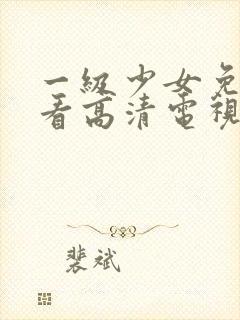 一級少女免
看高清電視
裴斌